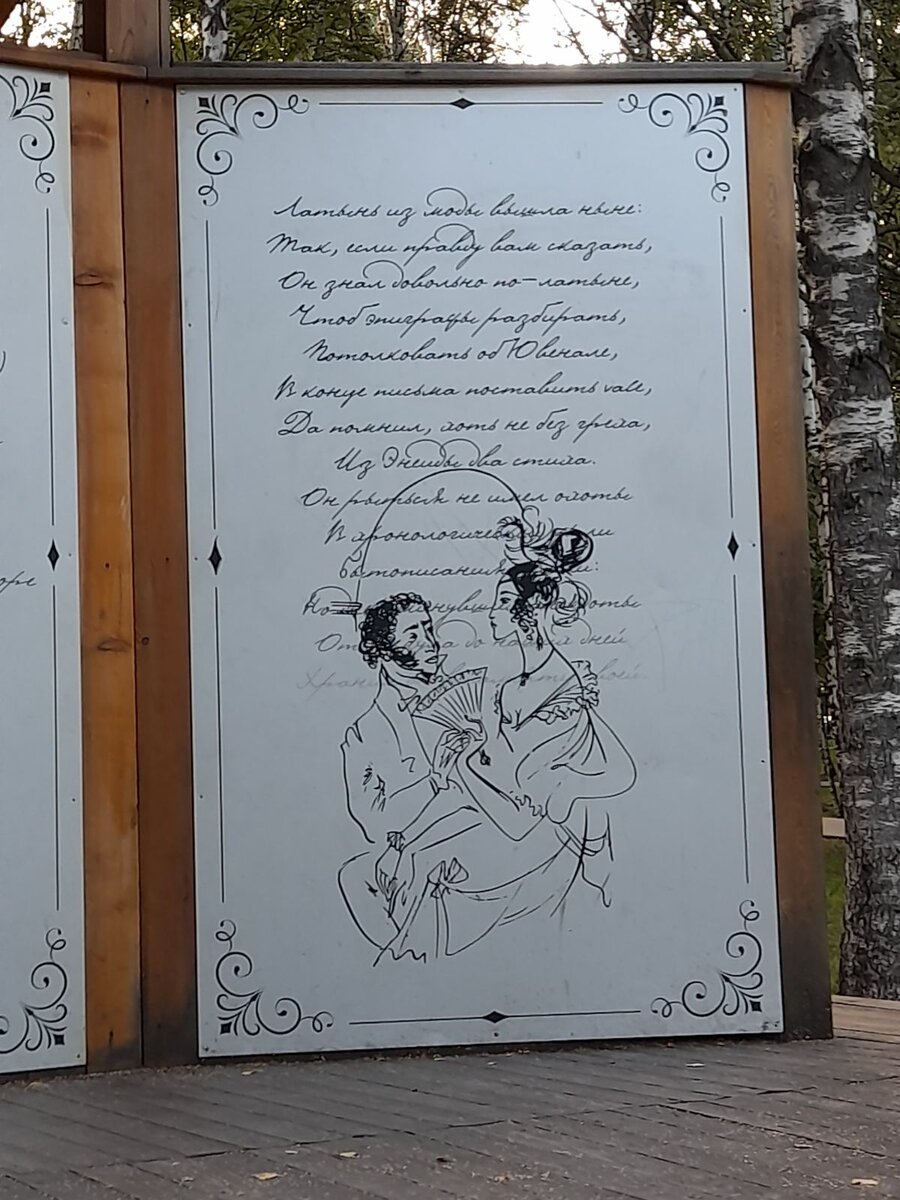 Латынь из моды вышла ныне:
Так, если правду вам сказать,
Он знал довольно по-латыне,
Чтоб эпиграфы разбирать,
Потолковать об Ювенале,
В конце письма поставить vale,
Да помнил, хоть не без греха,
Из Энеиды два стиха.
Он рыться не имел охоты
В хронологической
бытописания
до наших дней